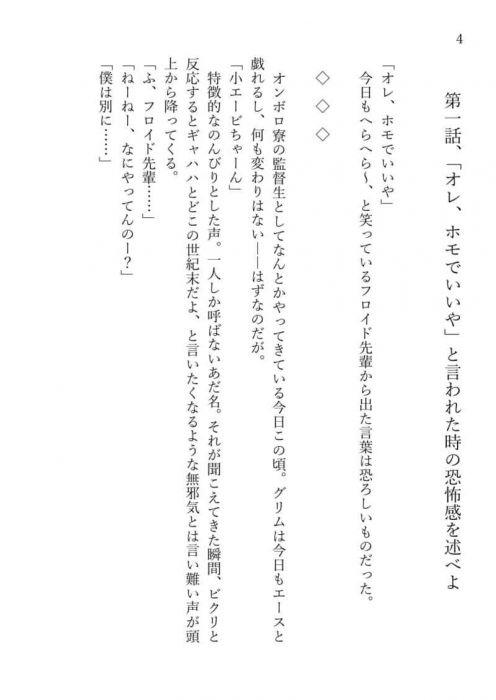 4
第一話、「オレ、ホモでいいや」と言われた時の恐怖感を述べよ
「オレ、ホモでいいや」
今日もへらへら~、と笑っているフロイド先輩から出た言葉は恐ろしいものだった。
◇ ◇ ◇
オンボロ寮の監督生としてなんとかやってきている今日この頃。グリムは今日もエースと
戯れるし、何も変わりはない――はずなのだが。
「小エービちゃーん」
特徴的なのんびりとした声。一人しか呼ばないあだ名。それが聞こえてきた瞬間、ビクリと
反応するとギャハハとどこの世紀末だよ、と言いたくなるような無邪気とは言い難い声が頭
上から降ってくる。
「ふ、フロイド先輩……」
「ねーねー、なにやってんのー?」
「僕は別に……」